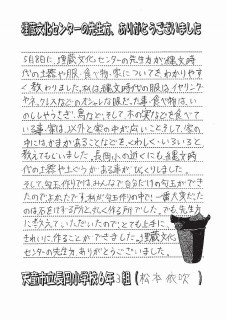 埋蔵文化センターの先生方、ありがとうございました
5月8日に、埋蔵文化センターの先生方が縄文時
代の土器や服、食べ物、家についてをわかりやす
く教わりました。私は縄文時代の服は、イヤリング
や、ネックレスなどのオシャレな服だった事、食べ物は、い
のししやうさぎ、鳥など、そして、木の実などを食べて
いる事、家は、以外と家の中が広いことそして、家の
中にはかまがあることなどを、くわしく、いろいろと
教えてもらいました。長岡小の近くにも縄文時
代の土器や土ぐうがある事がびっくりしました。
そして、勾玉作りでは、みんなで自分だけの勾玉ができ
たのでよかったです。私が勾玉作りの中で、一番大変だった
のは石をけずる所と、そして作る所でした。でも、先生方
に教えていただいたので、とても上手に
きれいに、作ることができました。埋蔵文化
センターの先生方、ありがとうございました。
天童市立長岡小学校6年3組（松本 依吹）